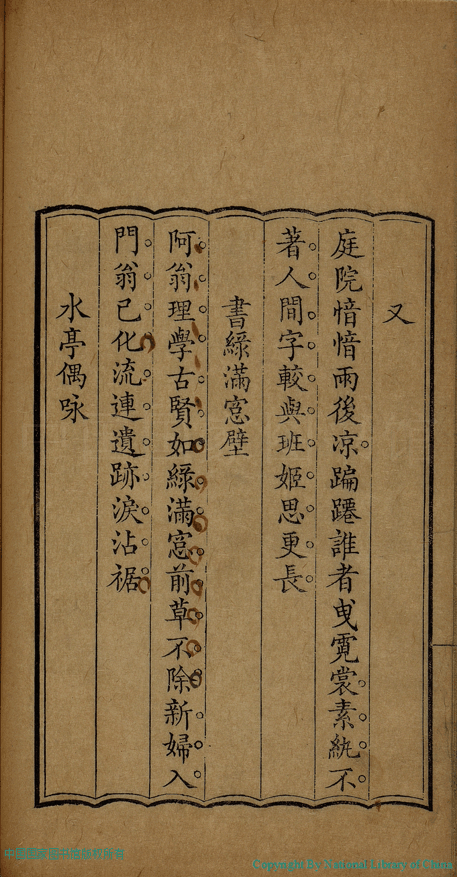 又
庭院愔愔雨後凉蹁蹮誰者曳霓裳素紈不
著人間字較與班姬思更長
書綠滿窻壁
阿翁理學古賢如綠滿窻前草不除新婦入
門翁已化流連遺跡淚沾裾
水亭偶咏
Copyright By National Library of China